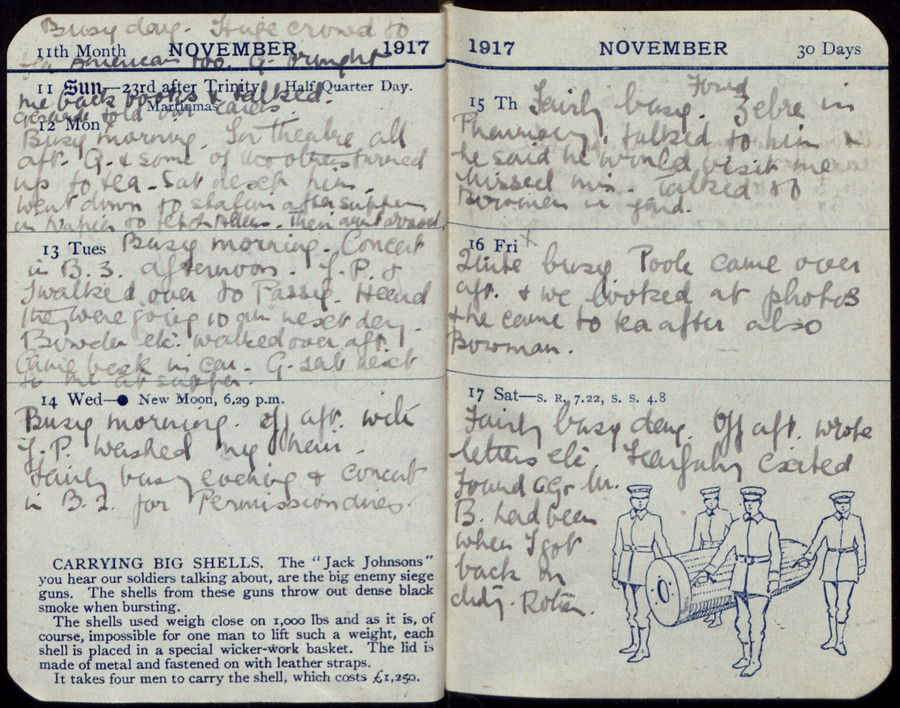 Busy day. Huge crowd to
11th Month NOVEMBER 1917
tea American too. G. brought
11 Sun—23rd after Trinity. Half Quarter Day.
me back books & talked.
Martinmas
told our cards.
12 Mon
Busy morning. In theatre all
aft. G. & some of turned
up to tea. Sat next him.
Went down to station after supper
in Napier to fetch
13 Tues Busy morning. Concert
in B. 3. afternoon. J. P. &
I walked over to Passy. Heard
they were going to next day.
Bowden etc. walked over aft.
Came back in car. G. sat next
to me at supper.
14 Wed—● New Moon, 6.29 p.m.
Busy morning. Off aft. with
J. P. washed my hair.
Fairly busy evening & Concert
in B. 2. for Permissionaires.
CARRYING BIG SHELLS. The "Jack Johnsons"
you hear our soldiers talking about, are the big enemy siege
guns. The shells from these guns throw out dense black
smoke when bursting.
The shells used weigh close on 1,000 lbs and as it is, of
course, impossible for one man to lift such a weight, each
shell is placed in a special wicker-work basket. The lid is
made of metal and fastened on with leather straps.
It takes four men to carry the shell, which costs £1,250.
1917 NOVEMBER 30 Days
Found
15 Th Fairly busy. Zebre in
Pharmacy, talked to him &
he said he would visit me
Missed him. Talked to
Bowmen in
16 Fri x
Quite busy Poole came over
aft. & we looked at photos
& he came to tea after also
Bowman.
17 Sat—S. R. 7.22, S. S. 4.8
Fairly busy day. Off aft. wrote
letters etc. Fearfully excited
Found G. M.
B. had been
when I got
back on
duty. Rotten.